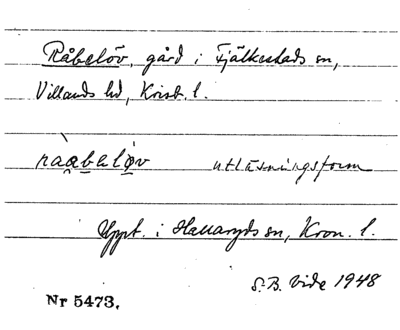 Råbelöv, gård i Fjälkestads sn,
Villands hd, Krist. l.
ràạbelø̣v utläsningsform
Uppt. i Hallaryds sn, Kron. l.
S.B. Vide 1948
Nr 5473.